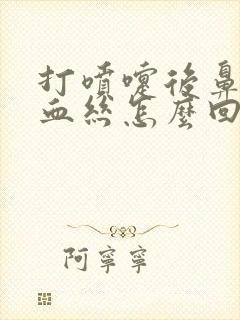 打噴嚏後鼻
血絲怎麼回
阿寧寧